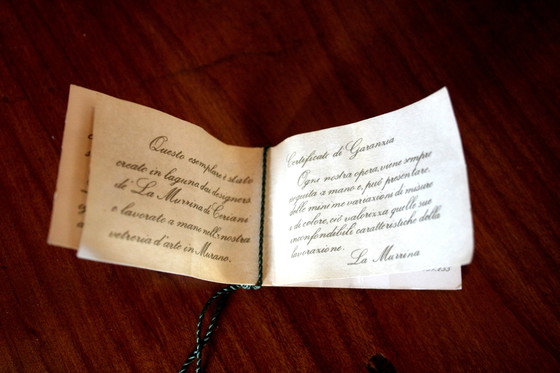 Questo esemplare è stato
creato in laguna dai designers
de "La Murrina di Ceriano
e lavorato a mano nella nostra
vetreria d'arte in Murano.
Certificato di Garanzia
Ogni nostra opera, viene sempre
eseguita a mano e, può presentare,
delle minime variazioni di misure
e di colore, ciò valorezza quelle sue
inconfondibili caratteristiche della
lavorazione.
La Murrina